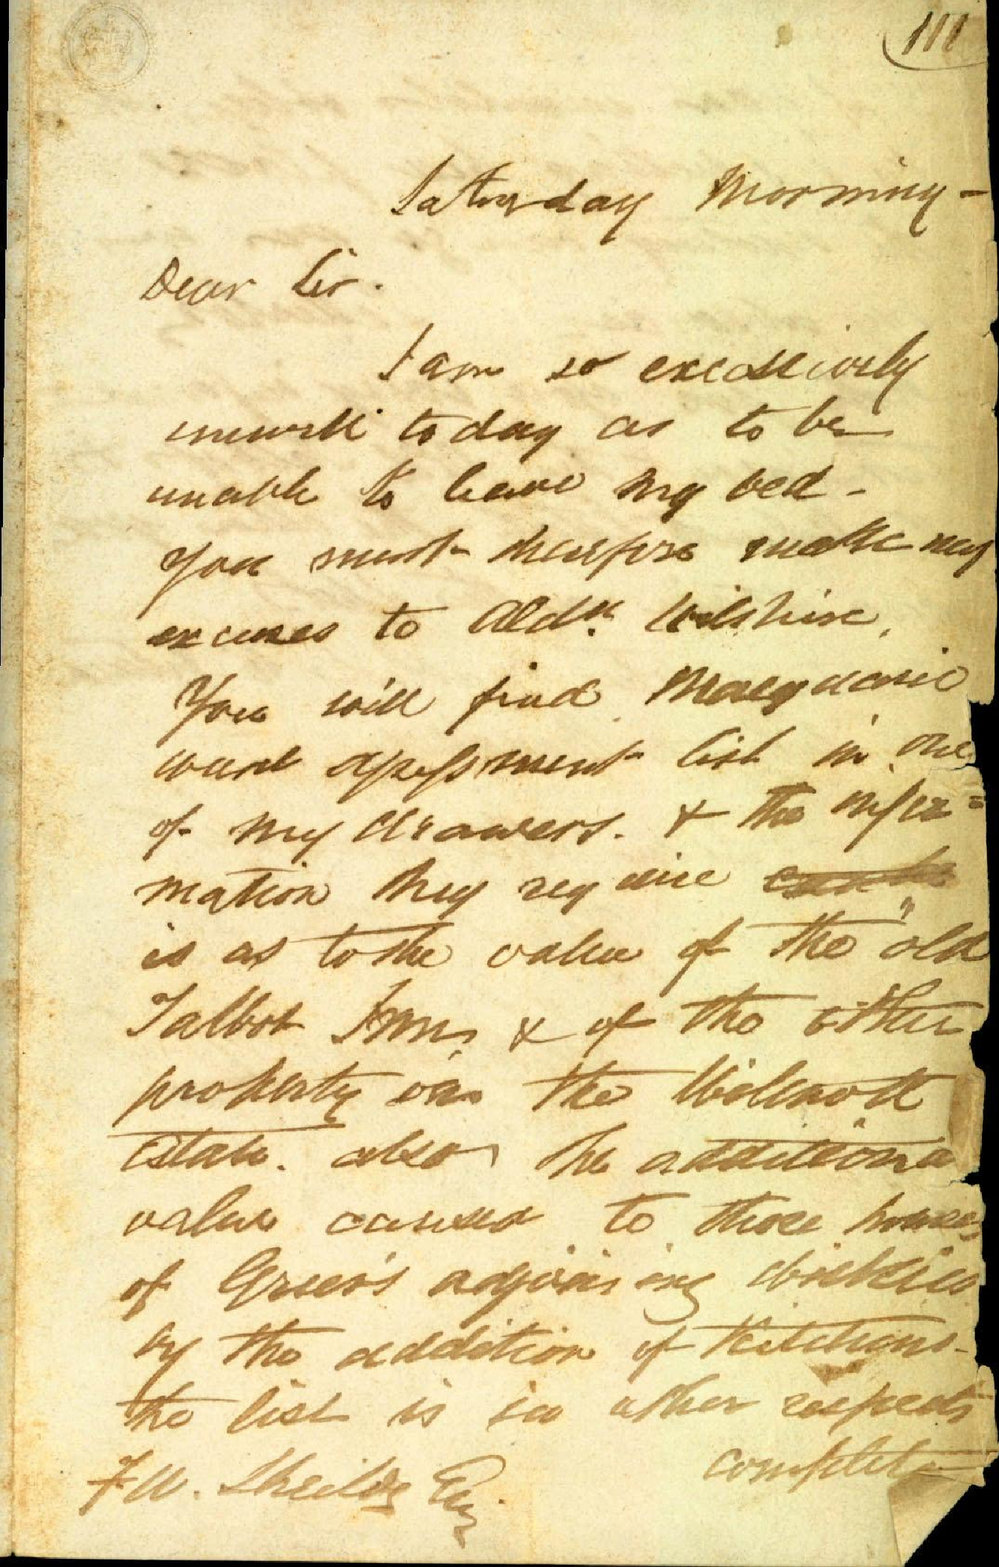 111
Saturday Morning -
Dear Sir.
I am so excessively
unwell today as to be
unable to leave my bed -
You must therefore make my
excuses to Aldn. Wilshire.
You will find Macquarie
ward assessment list in one
of my drawers. & the infor=
mation they require
is as to the value of the "old
Talbot Inn" & of the other
property on the
Estate. also the additional
value caused to those houses
of Green's adjoining
by the addition of Kitchens -
the list is in other respects
complete
F. W. Sheilds Esq.